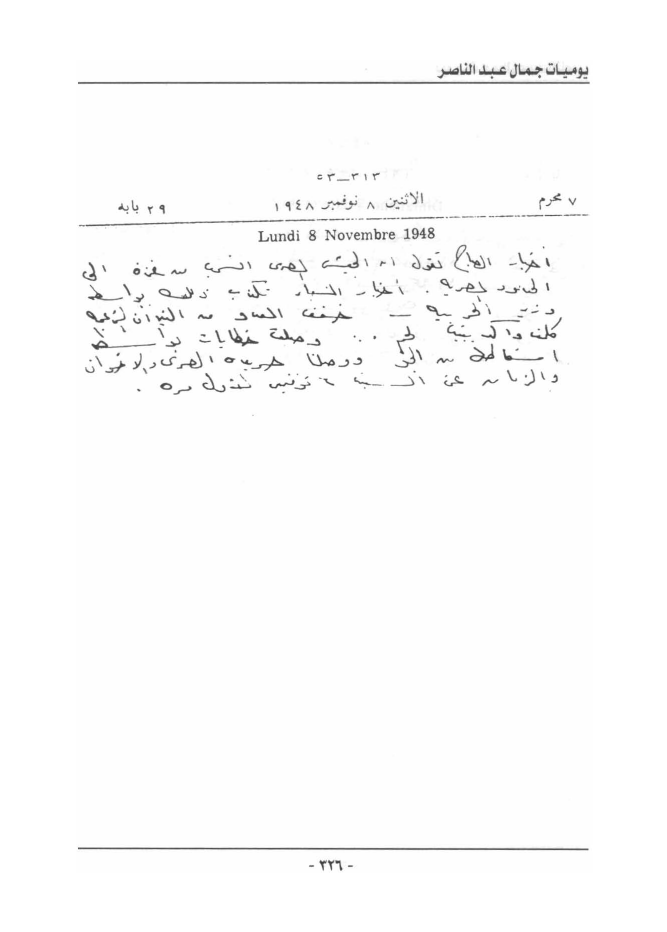 يوميات جمال عبد الناصر
٣١٣_٥٣
٧ محرم الاثنين ٨ نوفمبر ١٩٤٨ ٢٩ بابه
Lundi 8 Novembre 1948
أخبار الصباح تقول ان الجيش المصرى انسحب من غزة الى
الحدود المصريه . أخبار المساء تكذب ذلك بواسطة
وزير الحربيه _ خفف العدو من النيران
.. وصلت خطابات بواسطة
من الجو ووصلنا جريدة المصرى والاخوان
والزمان عن السبت ٦ نوفمبر لأول مره .
- ٣٢٦ -